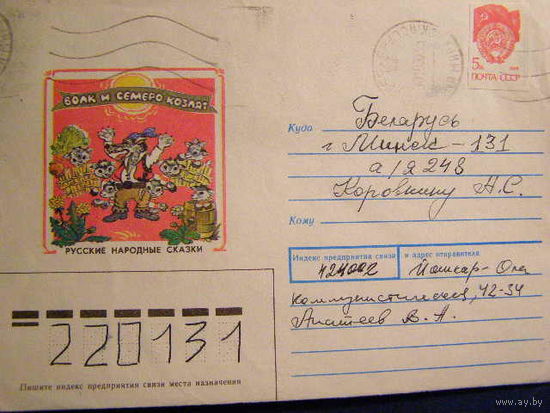 ВОЛК И СЕМЕРО КОЗЛЯТ
РУССКИЕ НАРОДНЫЕ СКАЗКИ
5к
ПОЧТА СССР
Куда
Беларусь
г Минск-131
а/я 248
Коровкину А.С.
Кому
Индекс предприятия связи
и адрес отправителя
424002
Йошкар-Ола
Коммунистическая, 42-34
В.А.
220131
Пишите индекс предприятия связи места назначения
www.ay.by